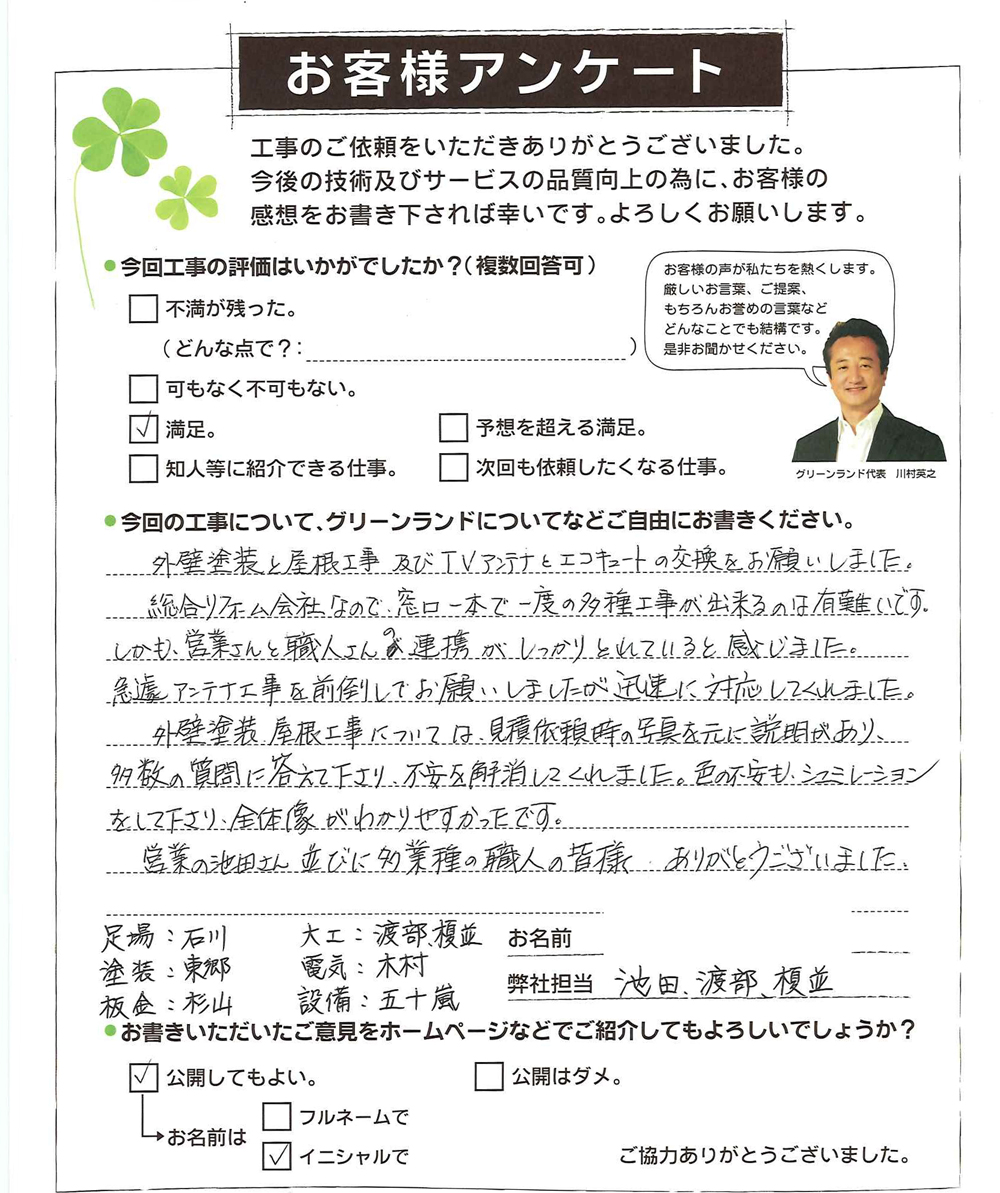 お客様アンケート
工事のご依頼をいただきありがとうございました。
今後の技術及びサービスの品質向上の為に、お客様の
感想をお書き下されば幸いです。よろしくお願いします。
●今回工事の評価はいかがでしたか?(複数回答可)
不満が残った。
(どんな点で?: )
可もなく不可もない。
✓ 満足。
予想を超える満足。
知人等に紹介できる仕事。
次回も依頼したくなる仕事。
お客様の声が私たちを熱くします。
厳しいお言葉、ご提案、
もちろんお誉めの言葉など
どんなことでも結構です。
是非お聞かせください。
グリーンランド代表 川村英之
●今回の工事について、グリーンランドについてなどご自由にお書きください。
外壁塗装と屋根工事 及びTVアンテナとエコキュートの交換をお願いしました。
総合リフォーム会社なので、窓口一本で一度の多種工事が出来るのは有難いです。
しかも、営業さんと職人さんの連携がしっかりとれていると感じました。
急遽アンテナ工事を前倒しでお願いしましたが迅速に対応してくれました。
外壁塗装 屋根工事については、見積依頼時の写真を元に説明があり、
多数の質問に答えて下さり、不安を解消してくれました。色の不安も、シュミレーション
をして下さり、全体像がわかりやすかったです。
営業の池田さん 並びに多業種の職人の皆様 ありがとうございました。
足場:石川 大工:渡部、榎並
塗装:東郷 電気:木村
板金:杉山 設備:五十嵐
お名前
弊社担当 池田、渡部、榎並
●お書きいただいたご意見をホームページなどでご紹介してもよろしいでしょうか?
✓ 公開してもよい。
公開はダメ。
お名前は
フルネームで
✓ イニシャルで
ご協力ありがとうございました。